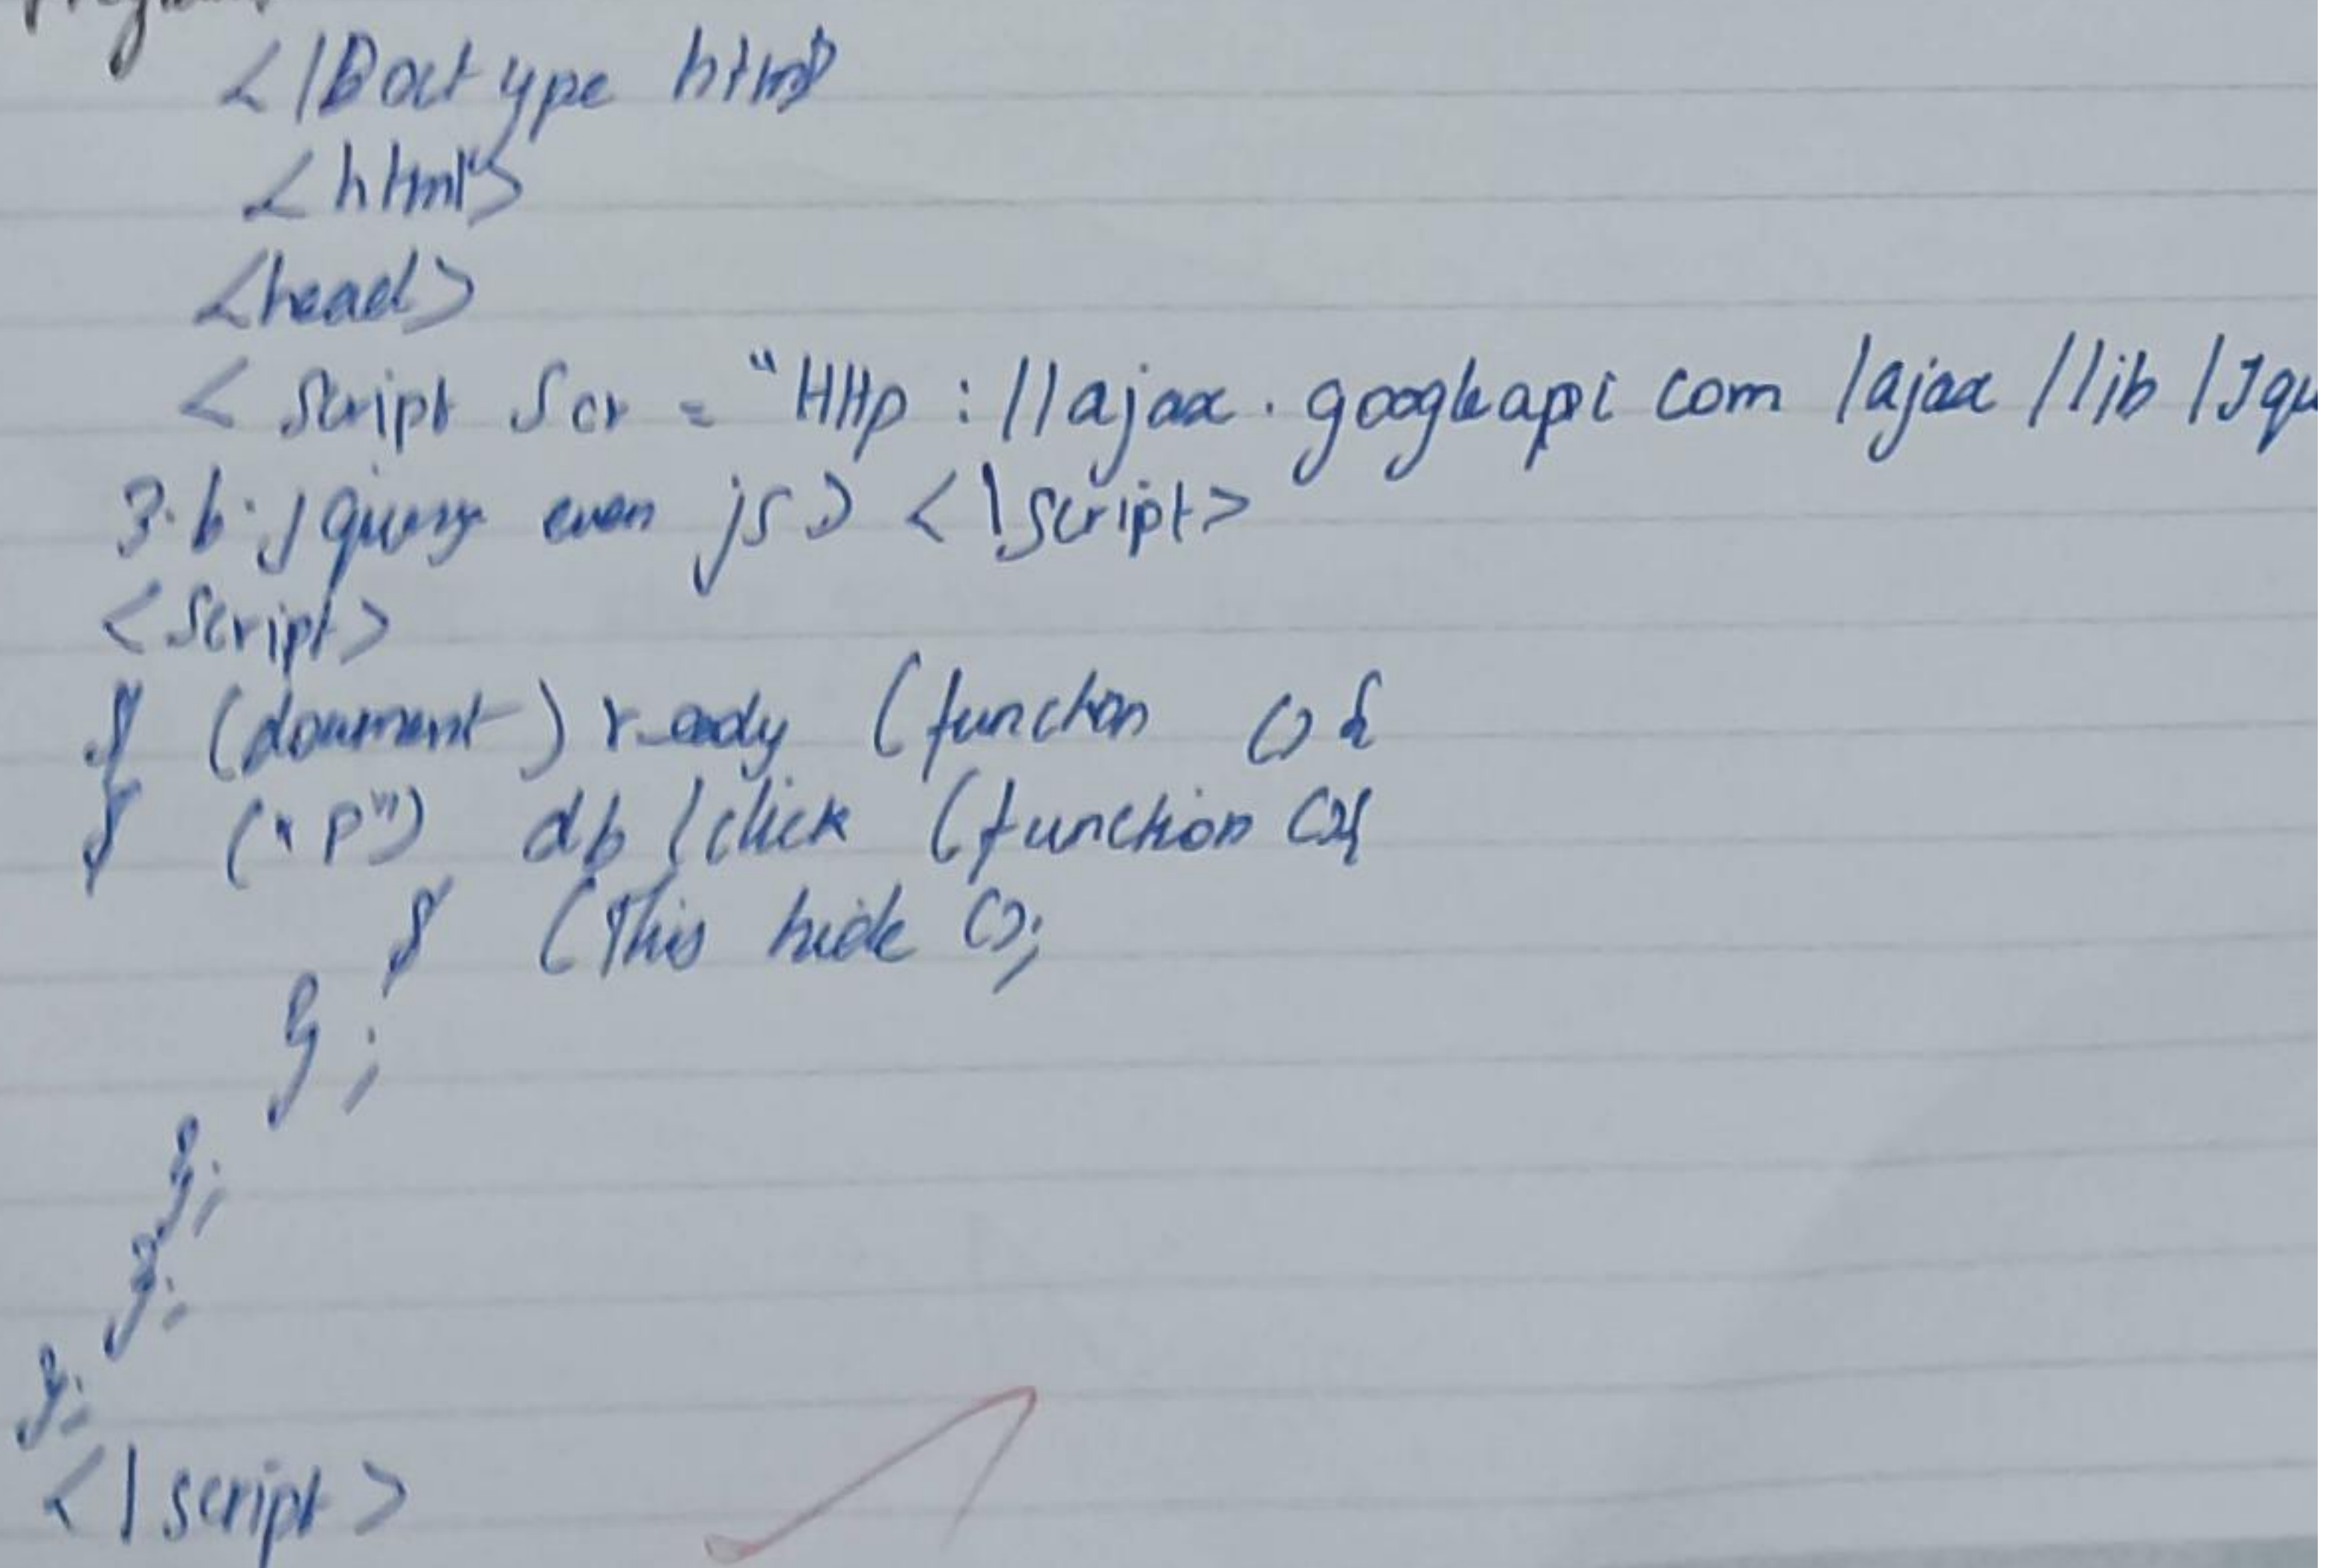 <!Doctype html>
<html>
<head>
< Script Scr = "Http : //ajax . googleapi com /ajax /lib /Jqu
3.6.jquery even js> <\Script>
<Script>
$ (document) ready (function () {
$ ("P") db lclick (function () {
$ (This hide ();
};
};
};
};
</script>